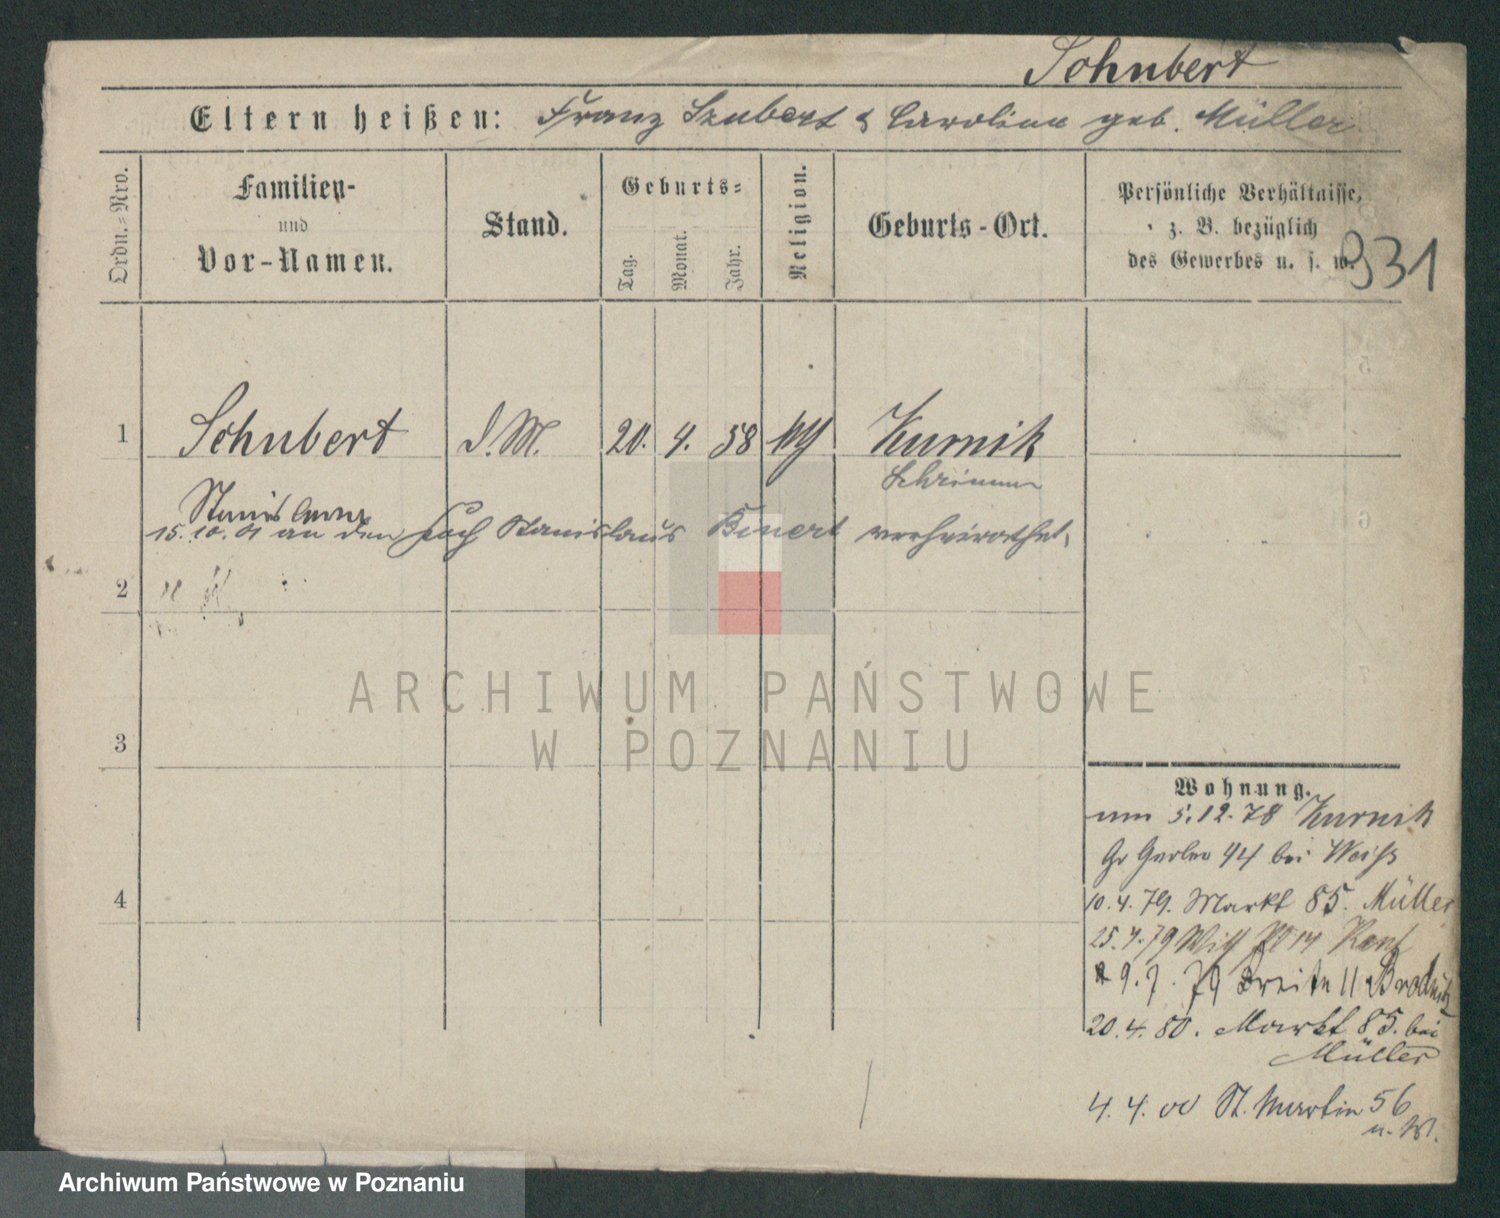 Schubert
Eltern heißen: Franz Szubert & Caroline geb. Müller
Ordn.=Nro.
Familien-
und
Vor-Namen.
Stand.
Geburts=
Tag.
Monat.
Jahr.
Religion.
Geburts-Ort.
Persönliche Verhältnisse,
z. B. bezüglich
des Gewerbes u. s. w.
931
1 Schubert d. M. 20. 4. 58 Kurnik
Schrimm
Stanislawa
15. 10. 01 an den Stanislaus verheirathet,
2
3
4
ARCHIWUM PAŃSTWOWE
W POZNANIU
Wohnung.
5.12.78 Kurnik
Gr Gerber 44 bei Weiss
10.4.79. Markt 85. Müller
25.4.79
9.7.79 Breite 11
20.4.80. Markt 85. bei
Müller
4.4.00 St. Martin 56
u. W.
Archiwum Państwowe w Poznaniu